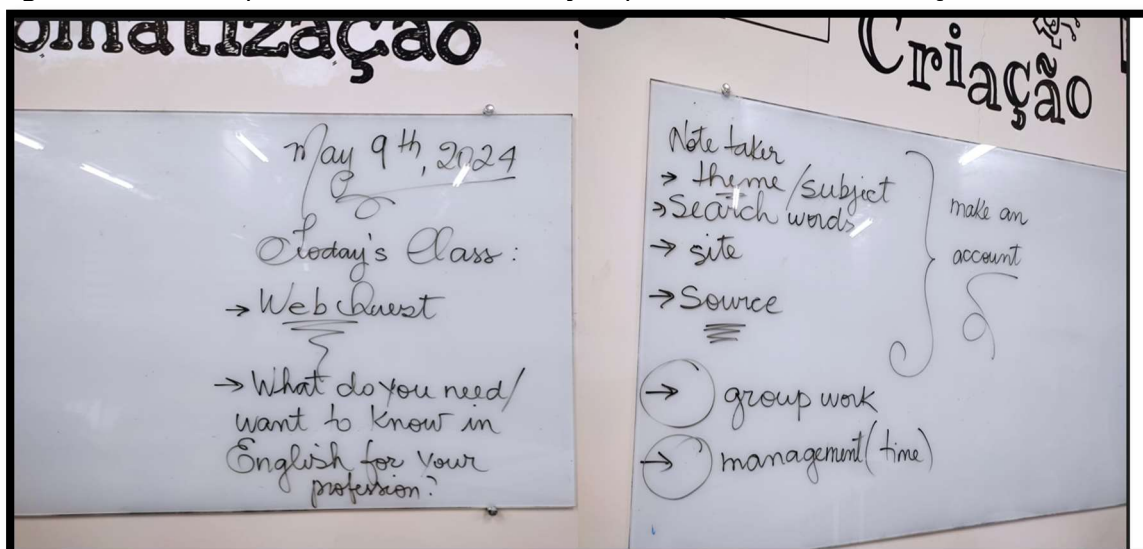 omatização
May 9th, 2024
Today's Class:
→ Web Quest
→ What do you need/
want to know in
English for your
profession?
Criação
Note taker
→ theme/subject
→ Search words
→ site
→ Source
make an
account
→ group work
→ management (time)